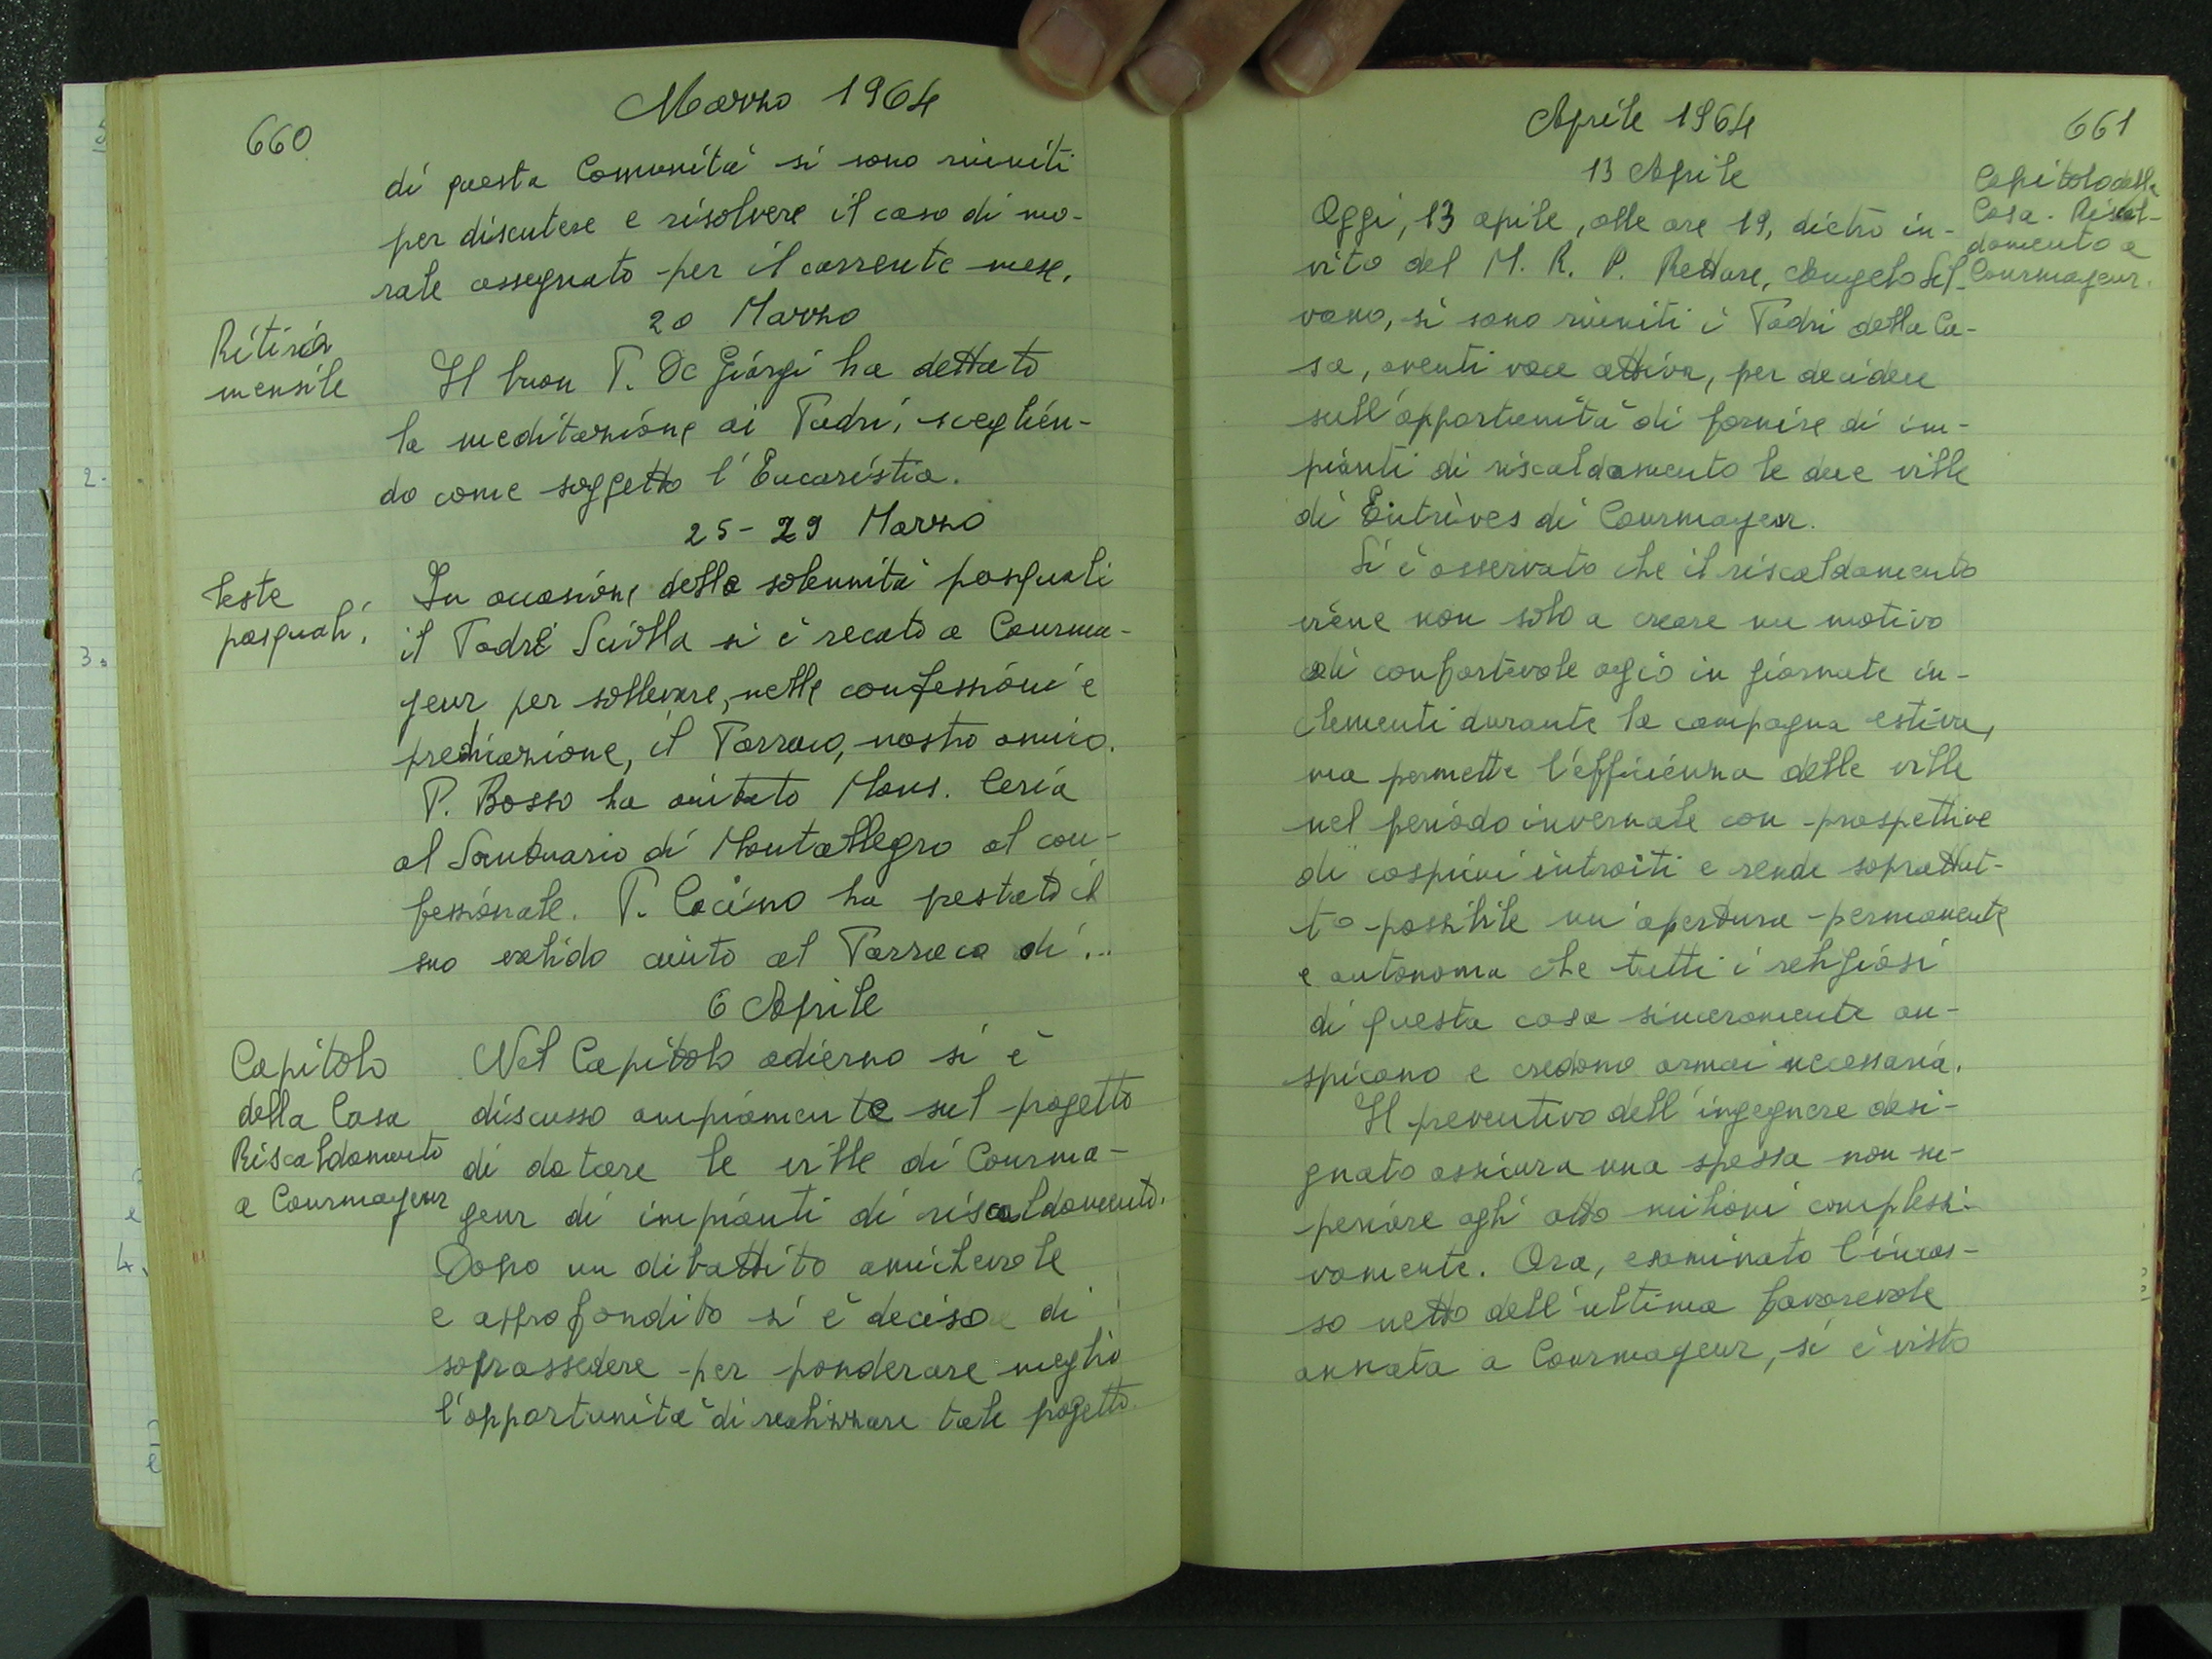 660
Marzo 1964
di questa Comunità si sono riuniti
per discutere e risolvere il caso di mo-
rale assegnato per il corrente mese.
20 Marzo
Ritiro
mensile
Il buon P. De Giorgi ha dettato
la meditazione ai Padri, sceglien-
do come soggetto l'Eucaristia.
25-29 Marzo
Feste
pasquali.
In occasione della solennità pasquali
il Padre Sciolla si è recato a Courma-
yeur per sollevare, nelle confessioni e
predicazione, il Parroco, nostro amico.
P. Bosso ha aiutato Mons. Ceria
al Santuario di Montallegro al con-
fessionale. P. Cocimo ha prestato il
suo valido aiuto al Parroco di...
6 Aprile
Capitolo
della Casa
Riscaldamento
a Courmayeur
Nel Capitolo odierno si è
discusso ampiamente sul progetto
di dotare le ville di Courma-
yeur di impianti di riscaldamento.
Dopo un dibattito amichevole
e approfondito si è deciso di
soprassedere per ponderare meglio
l'opportunità di realizzare tale progetto.
Aprile 1964
661
13 Aprile
Capitolo della
Casa. Riscal-
damento a
Courmayeur.
Oggi, 13 apile, alle ore 19, dietro in-
vito del M. R. P. Rettore, Angelo Sil-
vano, si sono riuniti i Padri della Ca-
sa, aventi voce attiva, per decidere
sull'opportunità di fornire di im-
pianti di riscaldamento le due ville
di Entrèves di Courmayeur.
Si è osservato che il riscaldamento
viene non solo a creare un motivo
di confortevole agio in giornate in-
clementi durante la campagna estiva,
ma permette l'efficienza delle ville
nel periodo invernale con prospettive
di cospicui introiti e rende soprattut-
to possibile un'apertura permanente
e autonoma che tutti i religiosi
di questa casa sinceramente au-
spicano e credono ormai necessaria.
Il preventivo dell'ingegnere desi-
gnato assicura una spessa non su-
periore agli otto milioni complessi-
vamente. Ora, esaminato l'incas-
so netto dell'ultima favorevole
annata a Courmayeur, si è visto